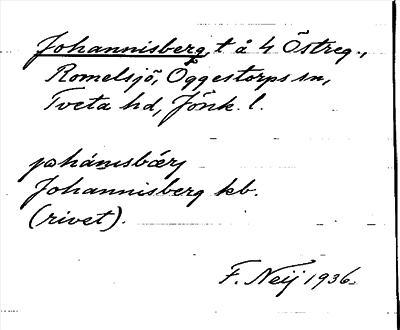 Johannisberg, t å 4 Östreg.,
Romelsjö, Öggestorps sn,
Tveta hd, Jönk. l.
Johannisberg kb.
(rivet).
F. Neij 1936.